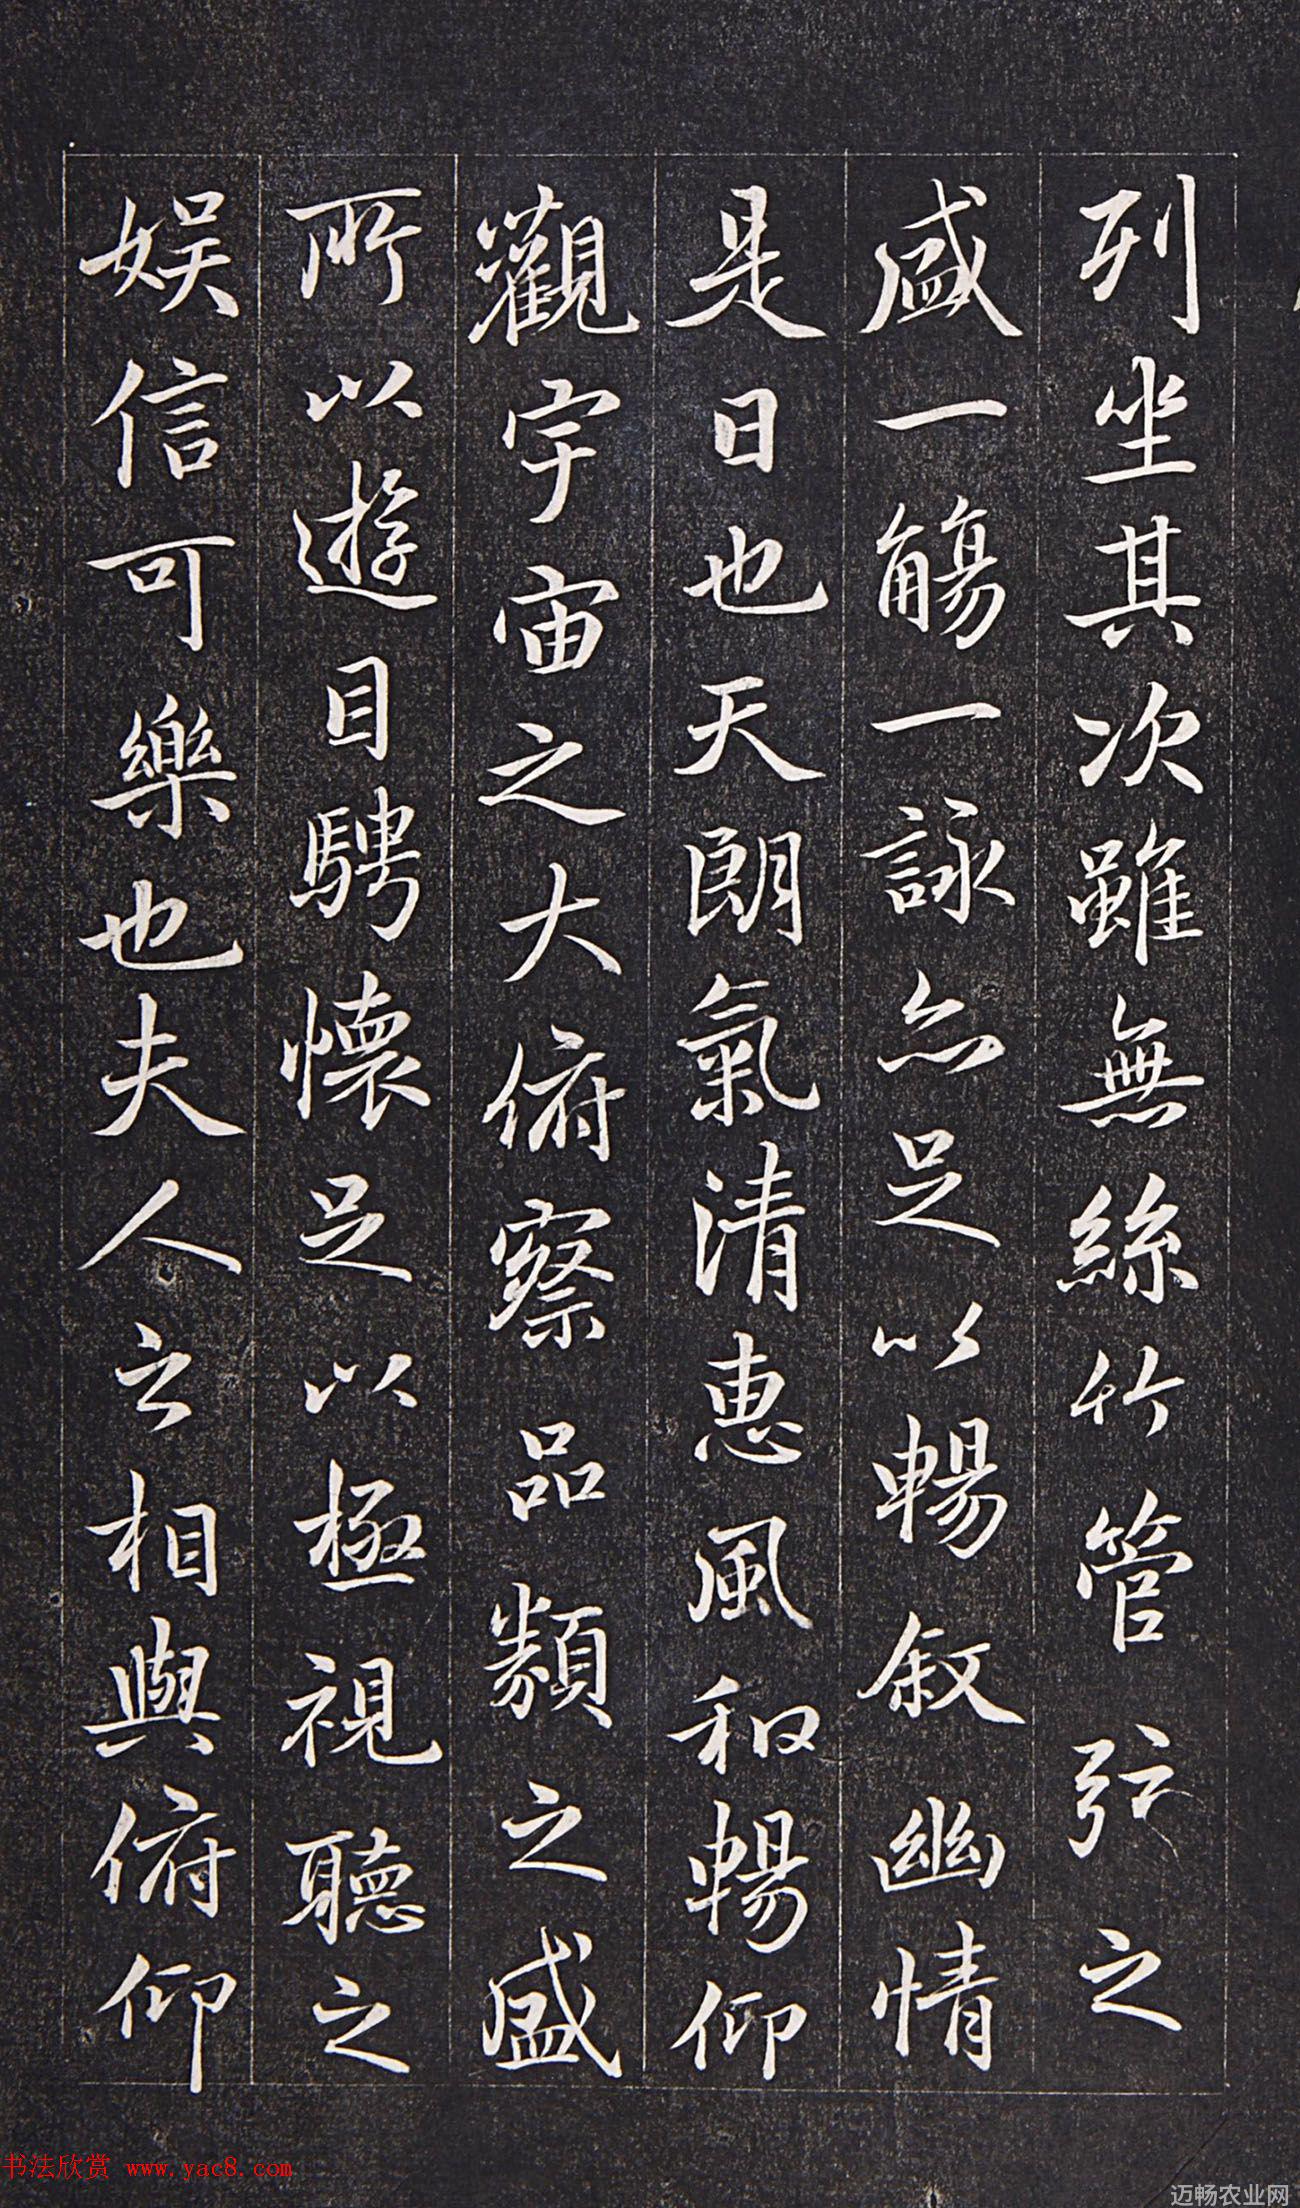 列坐其次雖無絲竹管弦之
盛一觴一詠亦足以暢敘幽情
是日也天朗氣清惠風和暢仰
觀宇宙之大俯察品類之盛
所以遊目騁懷足以極視聽之
娱信可樂也夫人之相與俯仰
书法欣赏 www.yac8.com
迈畅农业网